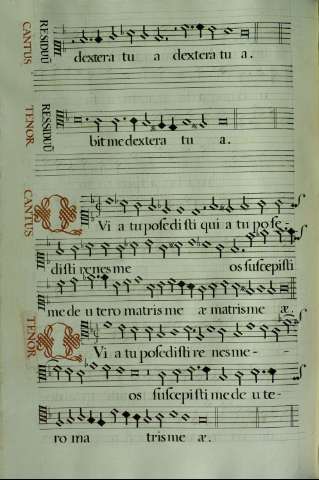 RESIDUŨ
CANTUS
dextera tu a dextera tu a.
RESSIDUŨ
TENOR
bit me dextera tu a.
CANTUS
Q Vi a tu posedisti qui a tu pose-
disti renes me os suscepisti
me de u tero matris me æ matris me æ.
TENOR.
Q Vi a tu posedisti re nes me-
os suscepisti me de u te-
ro ma tris me æ.